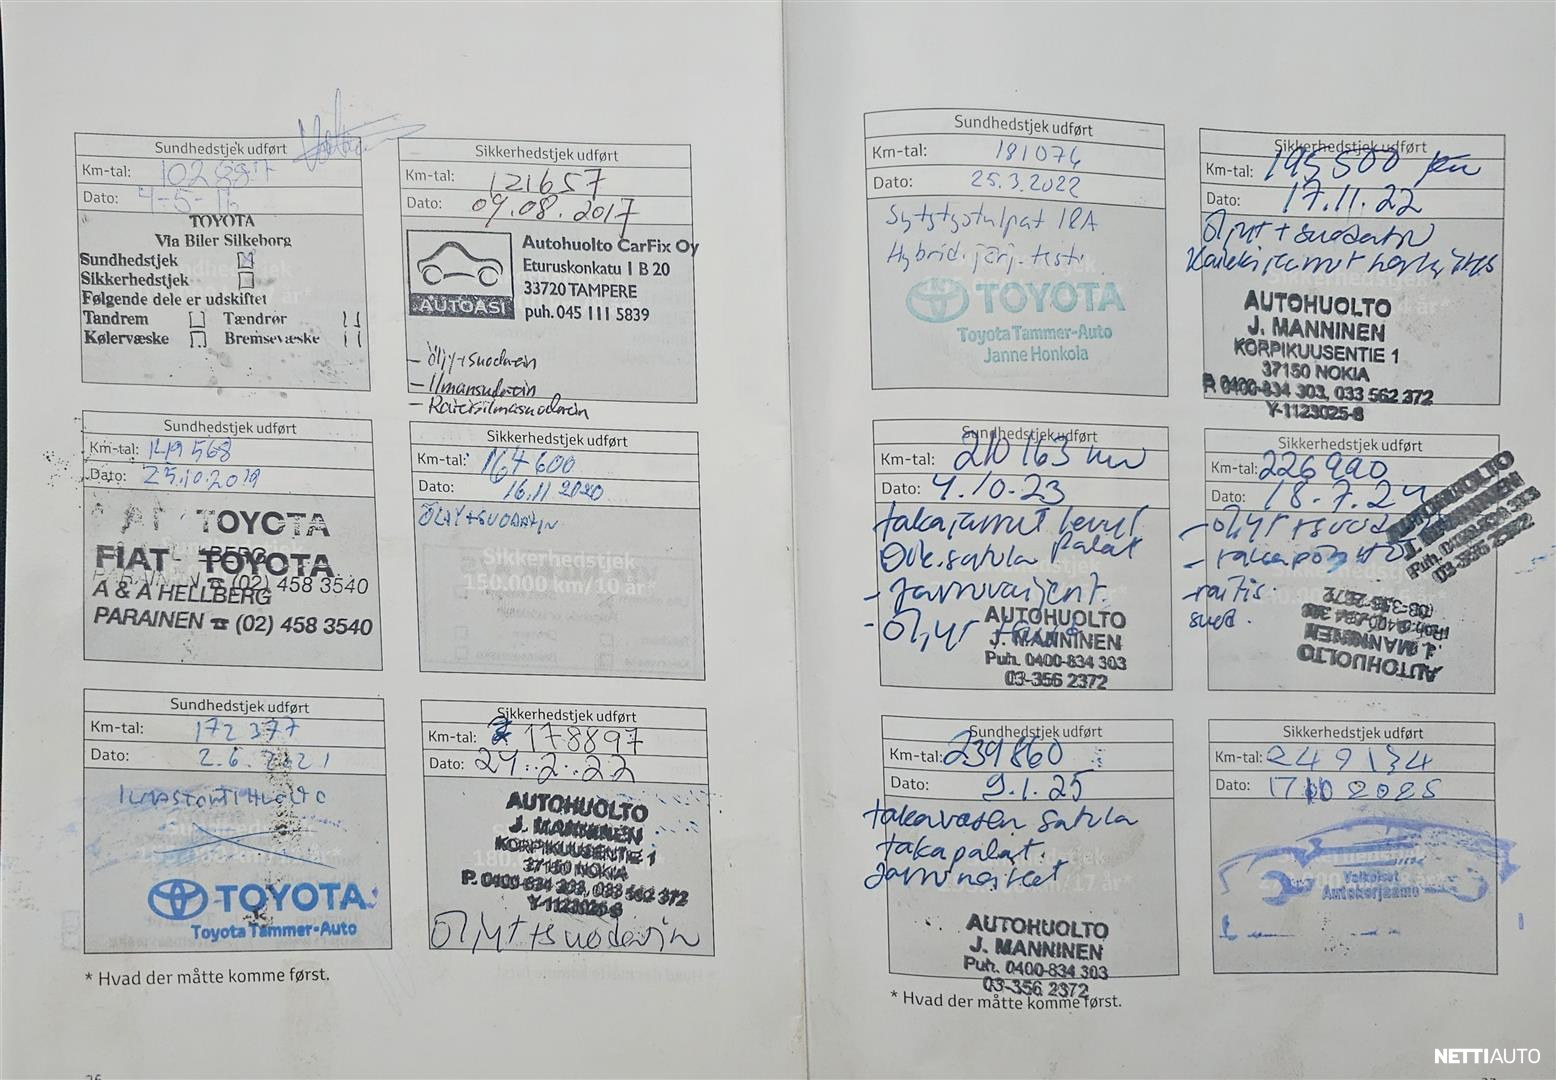 Sundhedstjek udført
Km-tal: 102887
Dato: 4-5-16
TOYOTA
Via Biler Silkeborg
Sundhedstjek
Sikkerhedstjek
Følgende dele er udskiftet
Tandrem Tændrør
Kølervæske Bremsevæske
Sikkerhedstjek udført
Km-tal: 121657
Dato: 09.08.2017
AUTOASI
Autohuolto CarFix Oy
Eturuskonkatu 1 B 20
33720 TAMPERE
puh. 045 111 5839
- Öljy+suodatin
- Ilmansuodatin
- Raitisilmasuodatin
Sundhedstjek udført
Km-tal: 149568
Dato: 25.10.2019
TOYOTA
FIAT TOYOTA
PARAINEN ☎ (02) 458 3540
A & A HELLBERG
PARAINEN ☎ (02) 458 3540
Sikkerhedstjek udført
Km-tal: 164600
Dato: 16.11.2020
ÖLJY+SUODATIN
Sikkerhedstjek
150.000 km/10 år*
Sundhedstjek udført
Km-tal: 172377
Dato: 2.6.2021
ILMASTOINTIHUOLTO
TOYOTA
Toyota Tammer-Auto
Sikkerhedstjek udført
Km-tal: 178897
Dato: 24.2.22
AUTOHUOLTO
J. MANNINEN
KORPIKUUSENTIE 1
37150 NOKIA
P. 0400-834 303, 033 562 372
Y-1123025-8
Öljyt+suodatin
* Hvad der måtte komme først.
Sundhedstjek udført
Km-tal: 181076
Dato: 25.3.2022
Sytytystulpat
Hybridi järj. testi
TOYOTA
Toyota Tammer-Auto
Janne Honkola
Sikkerhedstjek udført
Km-tal: 195500 km
Dato: 17.11.22
Öljyt+suodatin
AUTOHUOLTO
J. MANNINEN
KORPIKUUSENTIE 1
37150 NOKIA
P. 0400-834 303, 033 562 372
Y-1123025-8
Sundhedstjek udført
Km-tal: 210163 km
Dato: 4.10.23
takajarrut levyt
Oik. satula palat
- Jarruvaijerit.
- Öljyt
AUTOHUOLTO
J. MANNINEN
Puh. 0400-834 303
03-356 2372
Sikkerhedstjek udført
Km-tal: 226990
Dato: 18.7.24
- öljyt+suod
- raitis
suod.
AUTOHUOLTO
J. MANNINEN
Puh. 0400-834 303
03-356 2372
AUTOHUOLTO
J. MANNINEN
Sundhedstjek udført
Km-tal: 239860
Dato: 9.1.25
takavasen satula
takapalat
AUTOHUOLTO
J. MANNINEN
Puh. 0400-834 303
03-356 2372
Sikkerhedstjek udført
Km-tal: 249134
Dato: 17 10 2025
Valkoiset
Autokorjaamo
* Hvad der måtte komme først.
NETTIAUTO